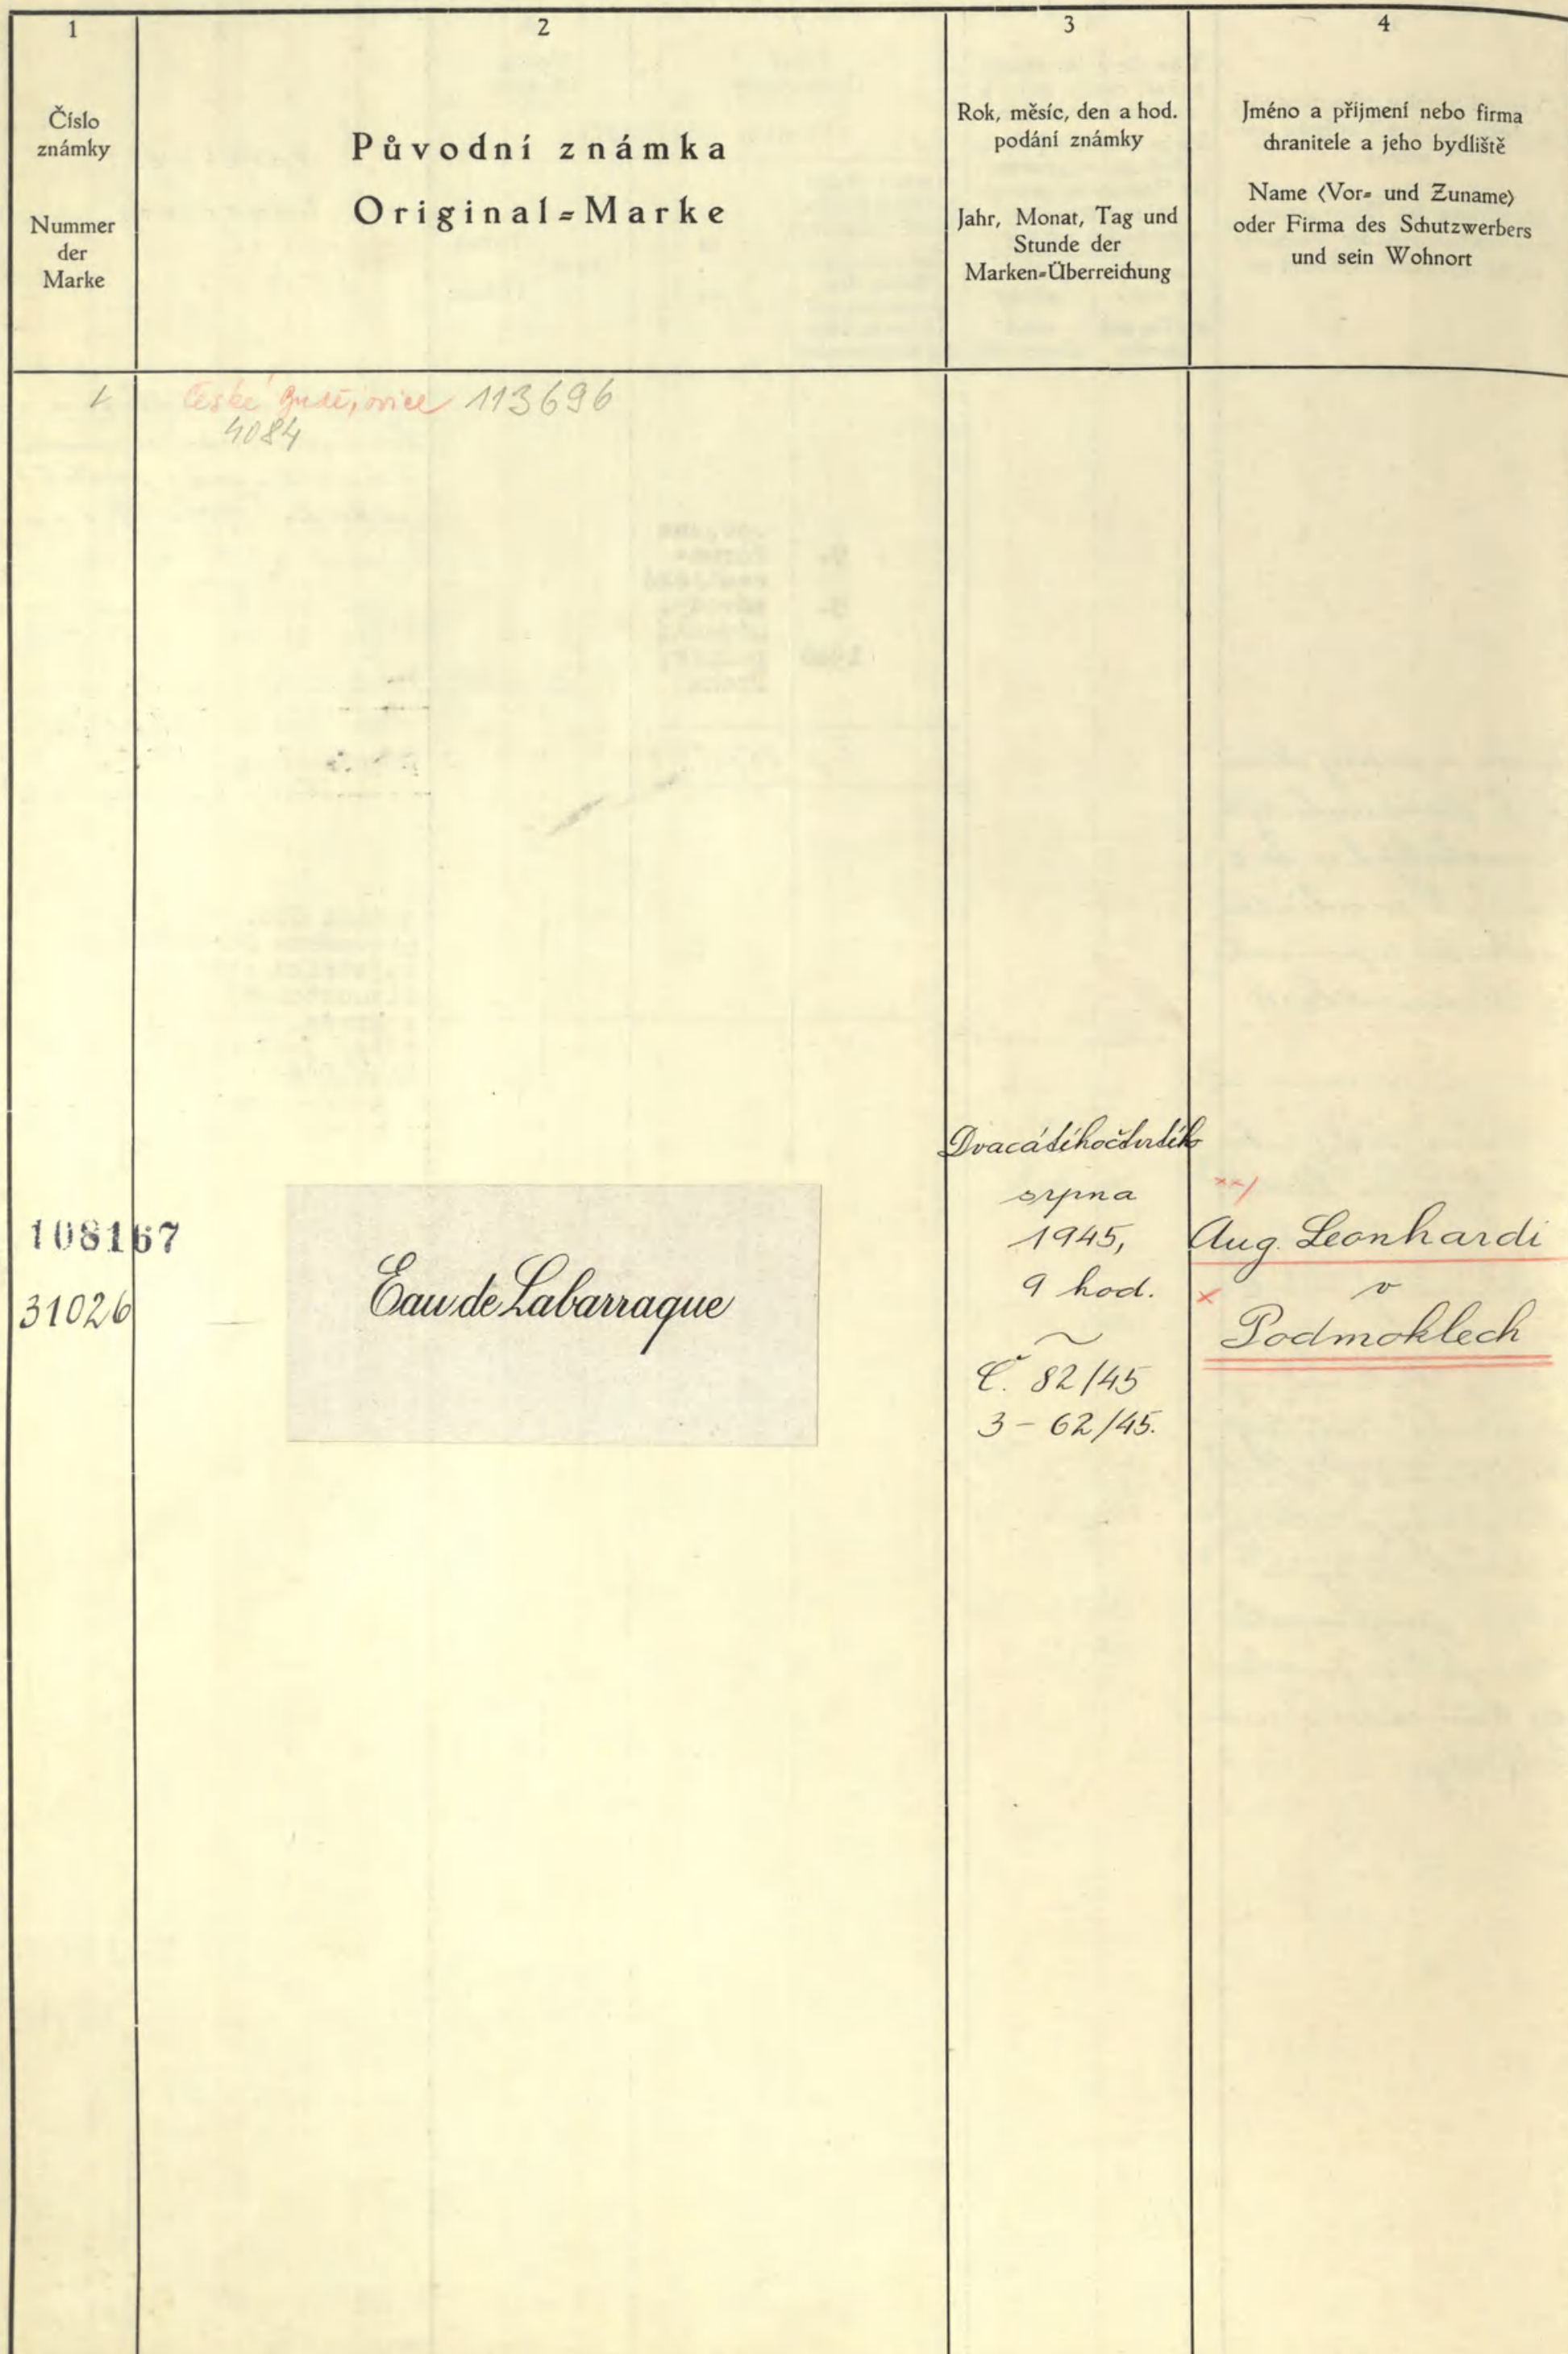 1
Číslo
známky
Nummer
der
Marke
2
Původní známka
Original=Marke
3
Rok, měsíc, den a hod.
podání známky
Jahr, Monat, Tag und
Stunde der
Marken=Überreichung
4
Jméno a přijmení nebo firma
chranitele a jeho bydliště
Name (Vor= und Zuname)
oder Firma des Schutzwerbers
und sein Wohnort
České Budějovice 113696
4084
108167
31026
Eau de Labarraque
Dvacátéhočtvrtého
srpna
1945,
9 hod.
Č. 82/45
3 - 62/45.
xx/
Aug. Leonhardi
x v
Podmoklech